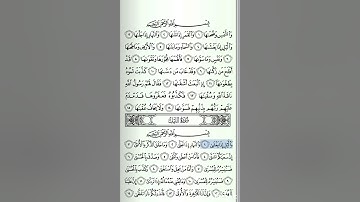 بِسْمِ اللَّهِ الرَّحْمَٰنِ الرَّحِيمِ
وَالشَّمْسِ وَضُحَاهَا ١ وَالْقَمَرِ إِذَا تَلَاهَا ٢ وَالنَّهَارِ إِذَا جَلَّاهَا ٣
وَاللَّيْلِ إِذَا يَغْشَاهَا ٤ وَالسَّمَاءِ وَمَا بَنَاهَا ٥ وَالْأَرْضِ وَمَا طَحَاهَا ٦
وَنَفْسٍ وَمَا سَوَّاهَا ٧ فَأَلْهَمَهَا فُجُورَهَا وَتَقْوَاهَا ٨ قَدْ
أَفْلَحَ مَن زَكَّاهَا ٩ وَقَدْ خَابَ مَن دَسَّاهَا ١٠ كَذَّبَتْ ثَمُودُ
بِطَغْوَاهَا ١١ إِذِ انبَعَثَ أَشْقَاهَا ١٢ فَقَالَ لَهُمْ رَسُولُ اللَّهِ
نَاقَةَ اللَّهِ وَسُقْيَاهَا ١٣ فَكَذَّبُوهُ فَعَقَرُوهَا فَدَمْدَمَ
عَلَيْهِمْ رَبُّهُم بِذَنبِهِمْ فَسَوَّاهَا ١٤ وَلَا يَخَافُ عُقْبَاهَا ١٥
سُورَةُ اللَّيْلِ
بِسْمِ اللَّهِ الرَّحْمَٰنِ الرَّحِيمِ
وَاللَّيْلِ إِذَا يَغْشَىٰ ١ وَالنَّهَارِ إِذَا تَجَلَّىٰ ٢ وَمَا خَلَقَ الذَّكَرَ وَالْأُنثَىٰ ٣
إِنَّ سَعْيَكُمْ لَشَتَّىٰ ٤ فَأَمَّا مَنْ أَعْطَىٰ وَاتَّقَىٰ ٥ وَصَدَّقَ بِالْحُسْنَىٰ ٦
فَسَنُيَسِّرُهُ لِلْيُسْرَىٰ ٧ وَأَمَّا مَن بَخِلَ وَاسْتَغْنَىٰ ٨ وَكَذَّبَ بِالْحُسْنَىٰ ٩
فَسَنُيَسِّرُهُ لِلْعُسْرَىٰ ١٠ وَمَا يُغْنِي عَنْهُ مَالُهُ إِذَا تَرَدَّىٰ ١١ إِنَّ عَلَيْنَا
لَلْهُدَىٰ ١٢ وَإِنَّ لَنَا لَلْآخِرَةَ وَالْأُولَىٰ ١٣